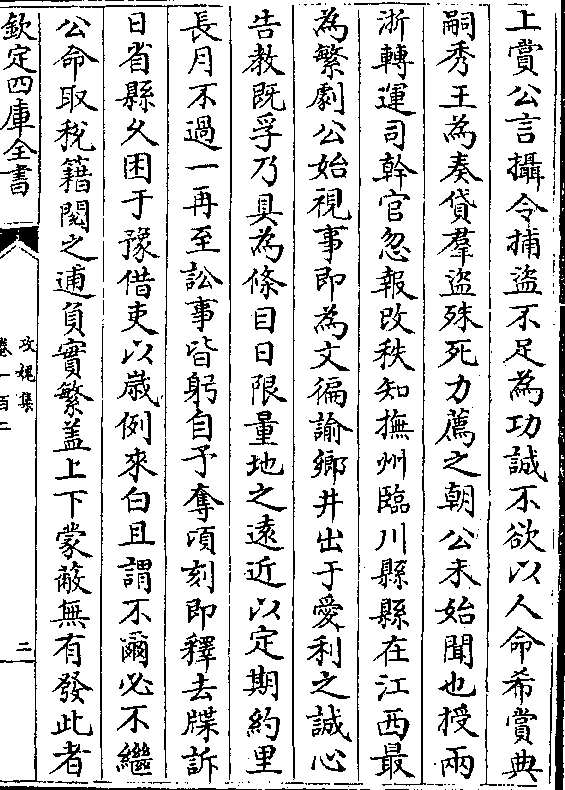 上賞公言攝令捕盗不足為功誠不欲以人命希賞典
嗣秀王為奏貸羣盗殊死力薦之朝公未始聞也授兩
浙轉運司幹官忽報改秩知撫州臨川縣縣在江西最
為繁劇公始視事即為文徧諭鄉井出于愛利之誠心
告教既孚乃具為條目日限量地之逺近以定期約里
長月不過一再至訟事皆躬自予奪頃刻即釋去牒訴
日省縣乆困于豫借吏以歳例來白且謂不爾必不繼
公命取稅籍閱之逋負實繁蓋上下蒙蔽無有發此者
欽定四庫全書
攻媿集
卷一百二
三